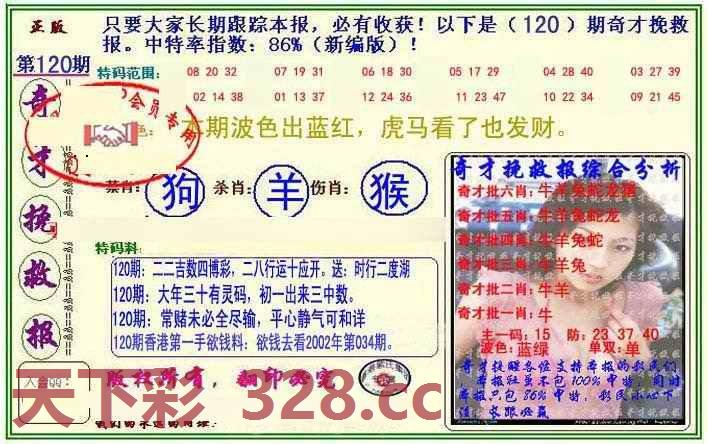 正版
只要大家长期跟踪本报，必有收获！以下是（120）期奇才挽救
报。中特率指数：86%（新编版）！
第120期
特码范围：
08 20 32 07 19 31 06 18 30 05 17 29 04 28 40 03 27 39
02 14 38 01 13 37 12 24 36 11 23 47 10 22 34 09 21 45
奇才挽救报
会员专用
色：本期波色出蓝红，虎马看了也发财。
禁肖：狗 杀肖：羊 伤肖：猴
特码料：
120期：二二吉数四博彩，二八行运十应开。送：时行二度湖
120期：大年三十有灵码，初一出来三中数。
120期：常赌未必全尽输，平心静气可和详
120期香港第一手欲钱料：欲钱去看2002年第034期。
版权所有，翻印必究
奇才挽救报综合分析
奇才批六肖：牛羊兔蛇龙猪
奇才批五肖：牛羊兔蛇龙
奇才批四肖：牛羊兔蛇
奇才批三肖：牛羊兔
奇才批二肖：牛羊
奇才批一肖：牛
主一码：15 防：23 37 40
波色：蓝绿 单双：单
奇才提醒各位支持本报的彩民们
本报社虽不包100%中特，同时
本报只包86%中特，彩民小心下
注
天下彩 328.cc